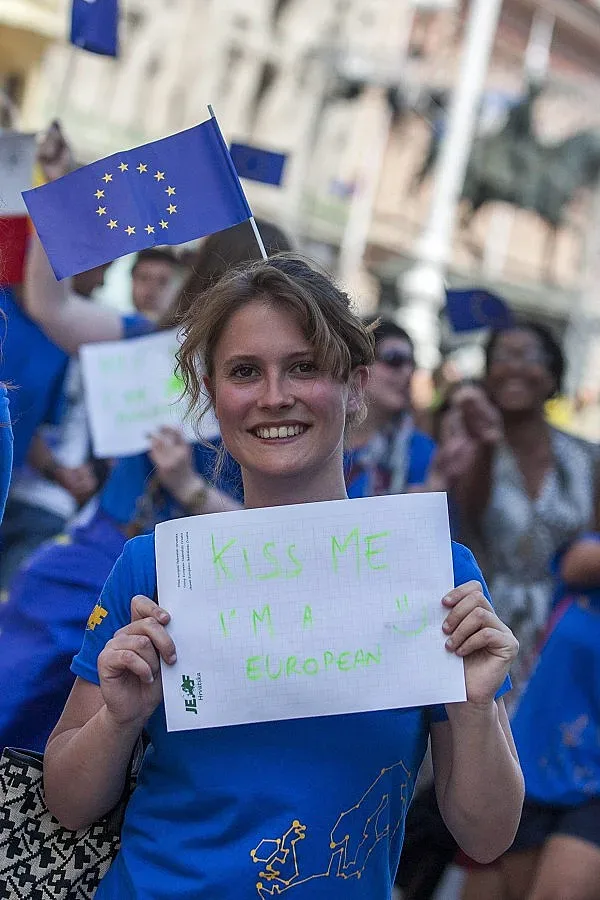 KISS ME
I'M A
EUROPEAN
JEF
Hrvatska